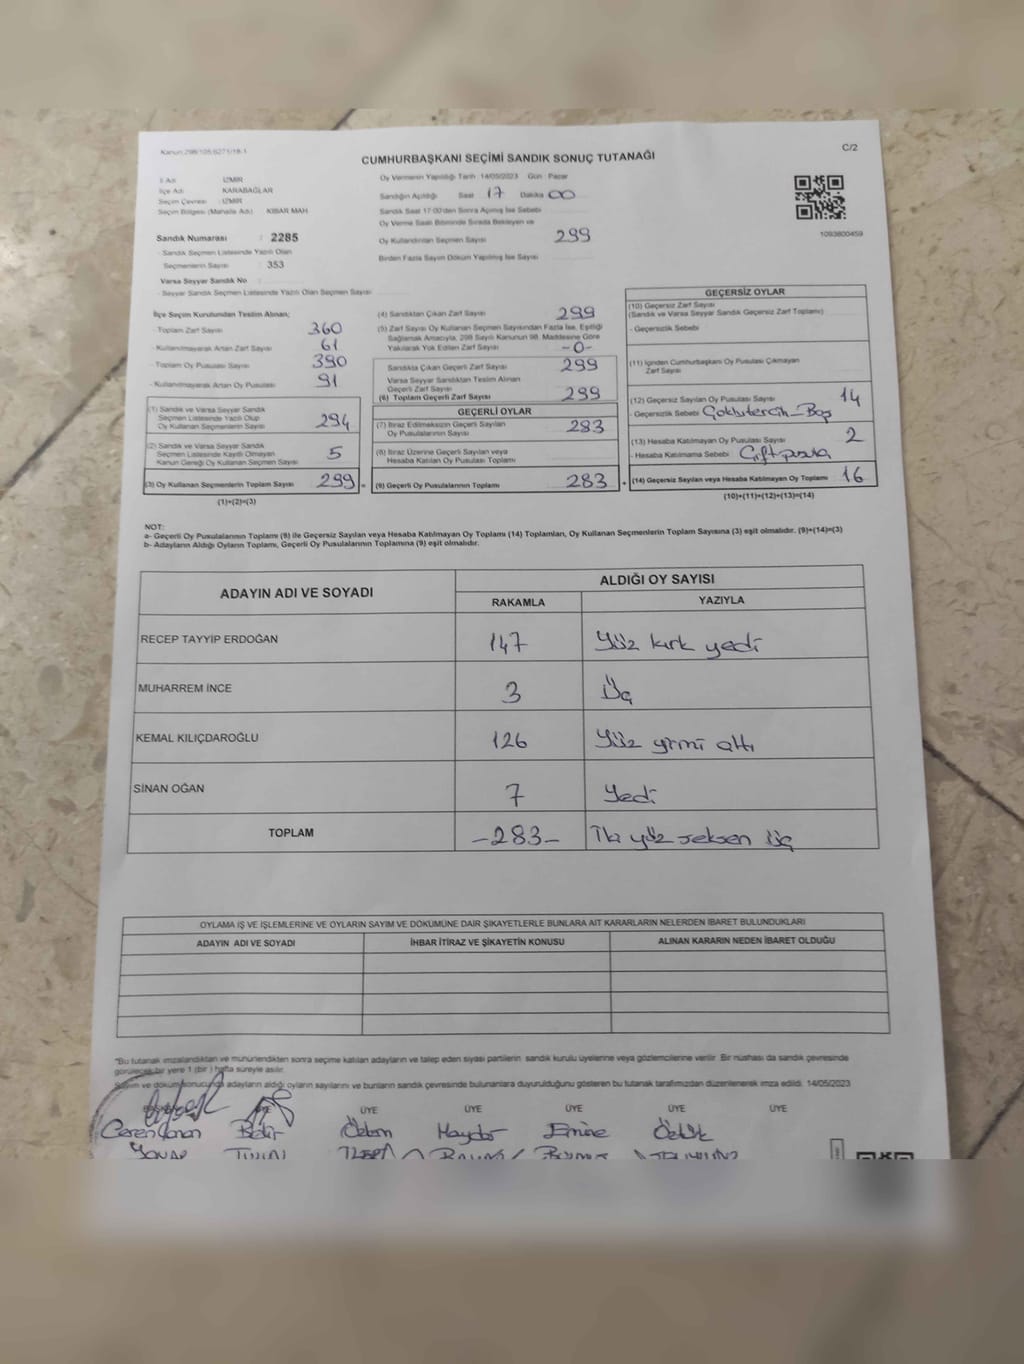 Kanun:298/105,6271/18-1
C/2
CUMHURBAŞKANI SEÇİMİ SANDIK SONUÇ TUTANAĞI
İl Adı : İZMİR
İlçe Adı : KARABAĞLAR
Seçim Çevresi : İZMİR
Seçim Bölgesi (Mahalle Adı) KIBAR MAH
Sandık Numarası : 2285
- Sandık Seçmen Listesinde Yazılı Olan
Seçmenlerin Sayısı : 353
Varsa Seyyar Sandık No :
- Seyyar Sandık Seçmen Listesinde Yazılı Olan Seçmen Sayısı
Oy Vermenin Yapıldığı Tarih : 14/05/2023 Gün : Pazar
Sandığın Açıldığı Saat 17 Dakika 00
Sandık Saat 17:00'den Sonra Açılmış İse Sebebi
Oy Verme Saati Bitiminde Sırada Bekleyen ve
Oy Kullandırılan Seçmen Sayısı 299
Birden Fazla Sayım Döküm Yapılmış İse Sayısı
1093800459
İlçe Seçim Kurulundan Teslim Alınan;
- Toplam Zarf Sayısı 360
- Kullanılmayarak Artan Zarf Sayısı 61
- Toplam Oy Pusulası Sayısı 390
- Kullanılmayarak Artan Oy Pusulası 91
(1) Sandık ve Varsa Seyyar Sandık
Seçmen Listesinde Yazılı Olup
Oy Kullanan Seçmenlerin Sayısı 294
(2) Sandık ve Varsa Seyyar Sandık
Seçmen Listesinde Kayıtlı Olmayan
Kanun Gereği Oy Kullanan Seçmen Sayısı 5
(3) Oy Kullanan Seçmenlerin Toplam Sayısı 299 =
(1)+(2)=(3)
(4) Sandıktan Çıkan Zarf Sayısı 299
(5) Zarf Sayısı Oy Kullanan Seçmen Sayısından Fazla İse, Eşitliği
Sağlamak Amacıyla, 298 Sayılı Kanunun 98. Maddesine Göre
Yakılarak Yok Edilen Zarf Sayısı -0-
Sandıkta Çıkan Geçerli Zarf Sayısı 299
Varsa Seyyar Sandıktan Teslim Alınan
Geçerli Zarf Sayısı
(6) Toplam Geçerli Zarf Sayısı 299
GEÇERLİ OYLAR
(7) İtiraz Edilmeksizin Geçerli Sayılan
Oy Pusulalarının Sayısı 283
(8) İtiraz Üzerine Geçerli Sayılan veya
Hesaba Katılan Oy Pusulası Toplamı
(9) Geçerli Oy Pusulalarının Toplamı 283 +
GEÇERSİZ OYLAR
(10) Geçersiz Zarf Sayısı
(Sandık ve Varsa Seyyar Sandık Geçersiz Zarf Toplamı)
- Geçersizlik Sebebi
(11) İçinden Cumhurbaşkanı Oy Pusulası Çıkmayan
Zarf Sayısı
(12) Geçersiz Sayılan Oy Pusulası Sayısı 14
- Geçersizlik Sebebi Çoklu tercih - Boş
(13) Hesaba Katılmayan Oy Pusulası Sayısı 2
- Hesaba Katılmama Sebebi Çift pusula
(14) Geçersiz Sayılan veya Hesaba Katılmayan Oy Toplamı 16
(10)+(11)+(12)+(13)=(14)
NOT:
a- Geçerli Oy Pusulalarının Toplamı (9) ile Geçersiz Sayılan veya Hesaba Katılmayan Oy Toplamı (14) Toplamları, Oy Kullanan Seçmenlerin Toplam Sayısına (3) eşit olmalıdır. (9)+(14)=(3)
b- Adayların Aldığı Oyların Toplamı, Geçerli Oy Pusulalarının Toplamına (9) eşit olmalıdır.
ADAYIN ADI VE SOYADI
ALDIĞI OY SAYISI
RAKAMLA YAZIYLA
RECEP TAYYİP ERDOĞAN 147 Yüz kırk yedi
MUHARREM İNCE 3 Üç
KEMAL KILIÇDAROĞLU 126 Yüz yirmi altı
SİNAN OĞAN 7 Yedi
TOPLAM -283- İki yüz seksen üç
OYLAMA İŞ VE İŞLEMLERİNE VE OYLARIN SAYIM VE DÖKÜMÜNE DAİR ŞİKAYETLERLE BUNLARA AİT KARARLARIN NELERDEN İBARET BULUNDUKLARI
ADAYIN ADI VE SOYADI İHBAR İTİRAZ VE ŞİKAYETİN KONUSU ALINAN KARARIN NEDEN İBARET OLDUĞU
"Bu tutanak imzalandıktan ve mühürlendikten sonra seçime katılan adayların ve talep eden siyasi partilerin sandık kurulu üyelerine veya gözlemcilerine verilir. Bir nüshası da sandık çevresinde
görülecek bir yere 1 (bir) hafta süreyle asılır.
Sayım ve döküm sonucunda adayların aldığı oyların sayılarını ve bunların sandık çevresinde bulunanlara duyurulduğunu gösteren bu tutanak tarafımızdan düzenlenerek imza edildi. 14/05/2023
ÜYE ÜYE ÜYE ÜYE ÜYE ÜYE
Bekir Özlem Haydar Emine